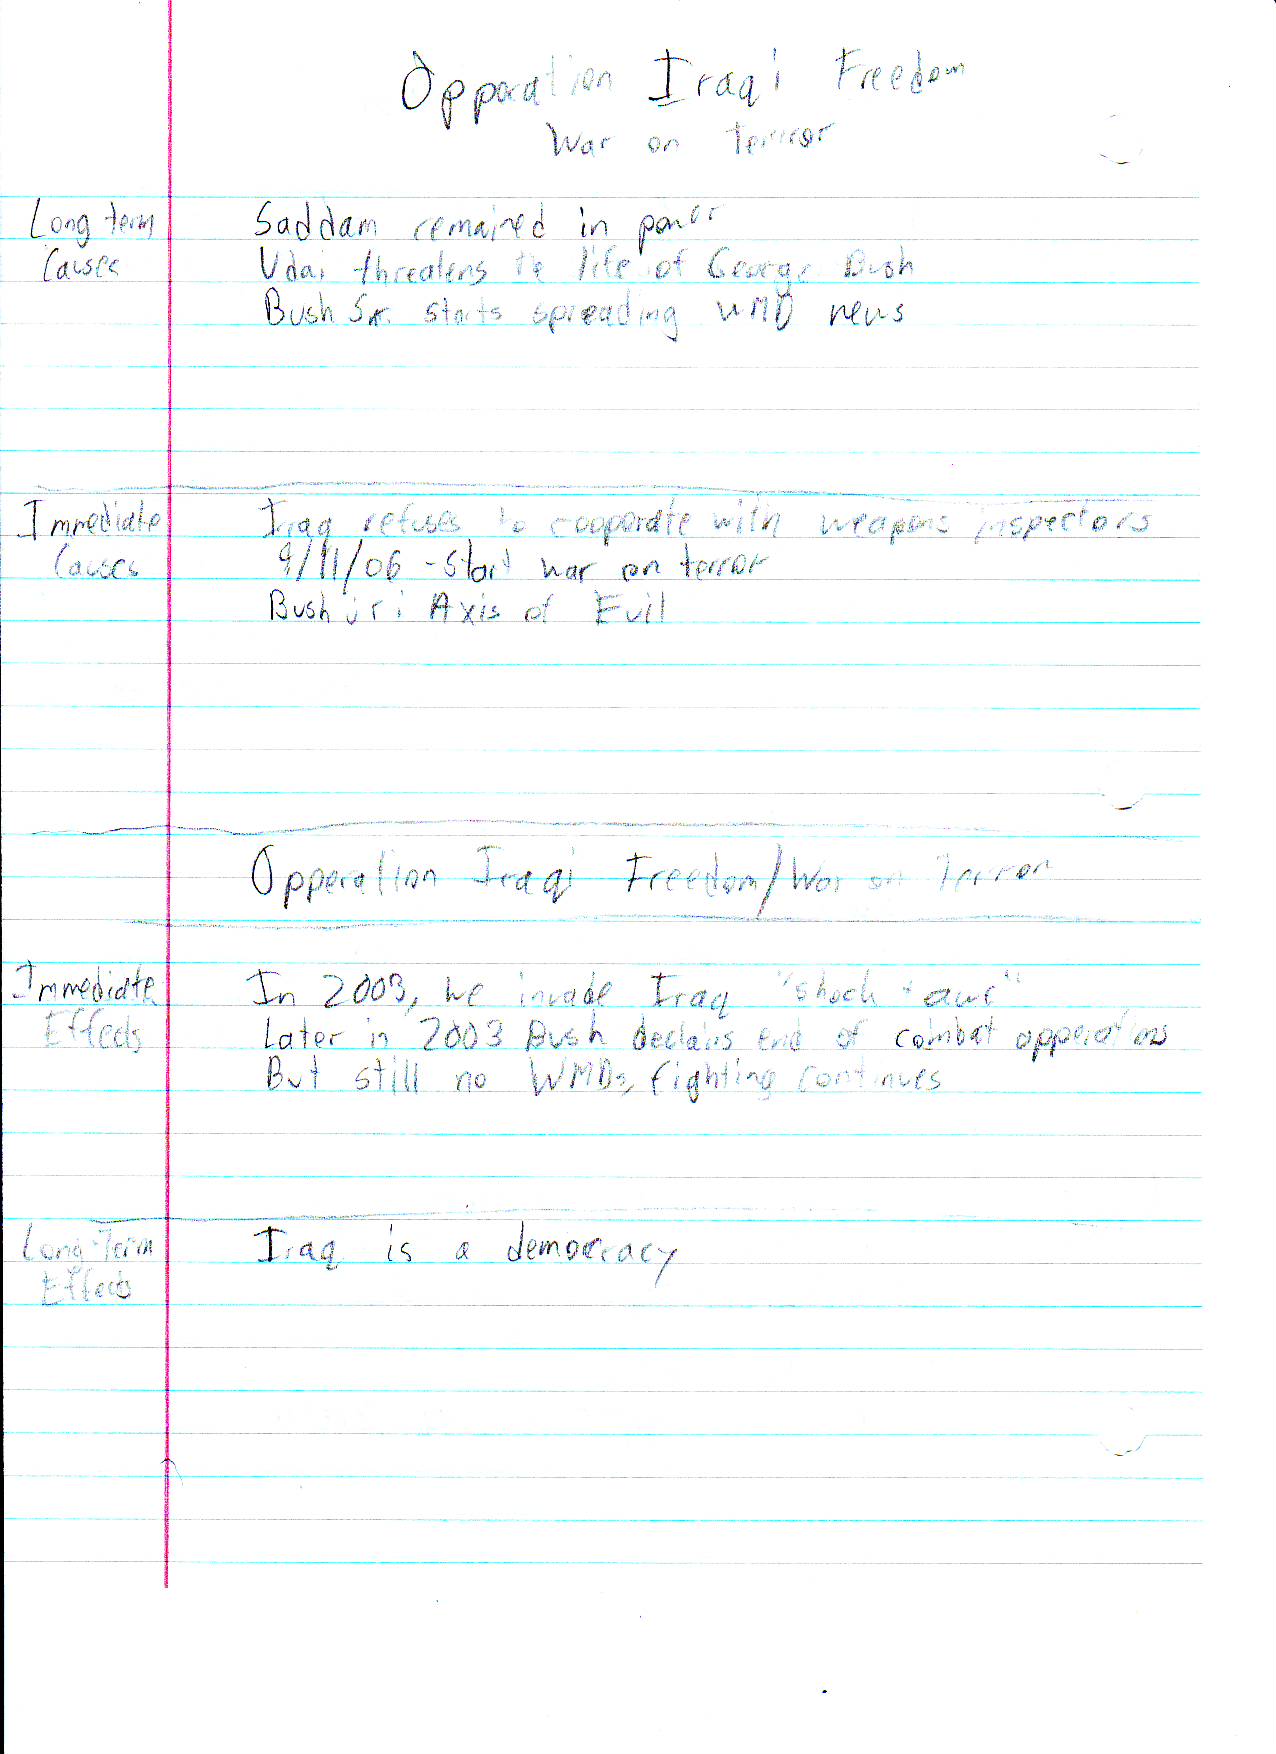 Opperation Iraqi Freedom
War on terror
Long term Saddam remained in power
Causes Udai threatens the life of George Bush
Bush Sr. starts spreading WMD news
Immediate Iraq refuses to cooporate with weapons inspectors
Causes 9/11/06 - Start war on terror
Bush jr: Axis of Evil
Opperation Iraqi Freedom/War on Terror
Immediate In 2003, we invade Iraq "shock + awe"
Effects Later in 2003 Bush declairs end of combat opperations
But still no WMDs, fighting continues
Long-Term Iraq is a democracy
Effects